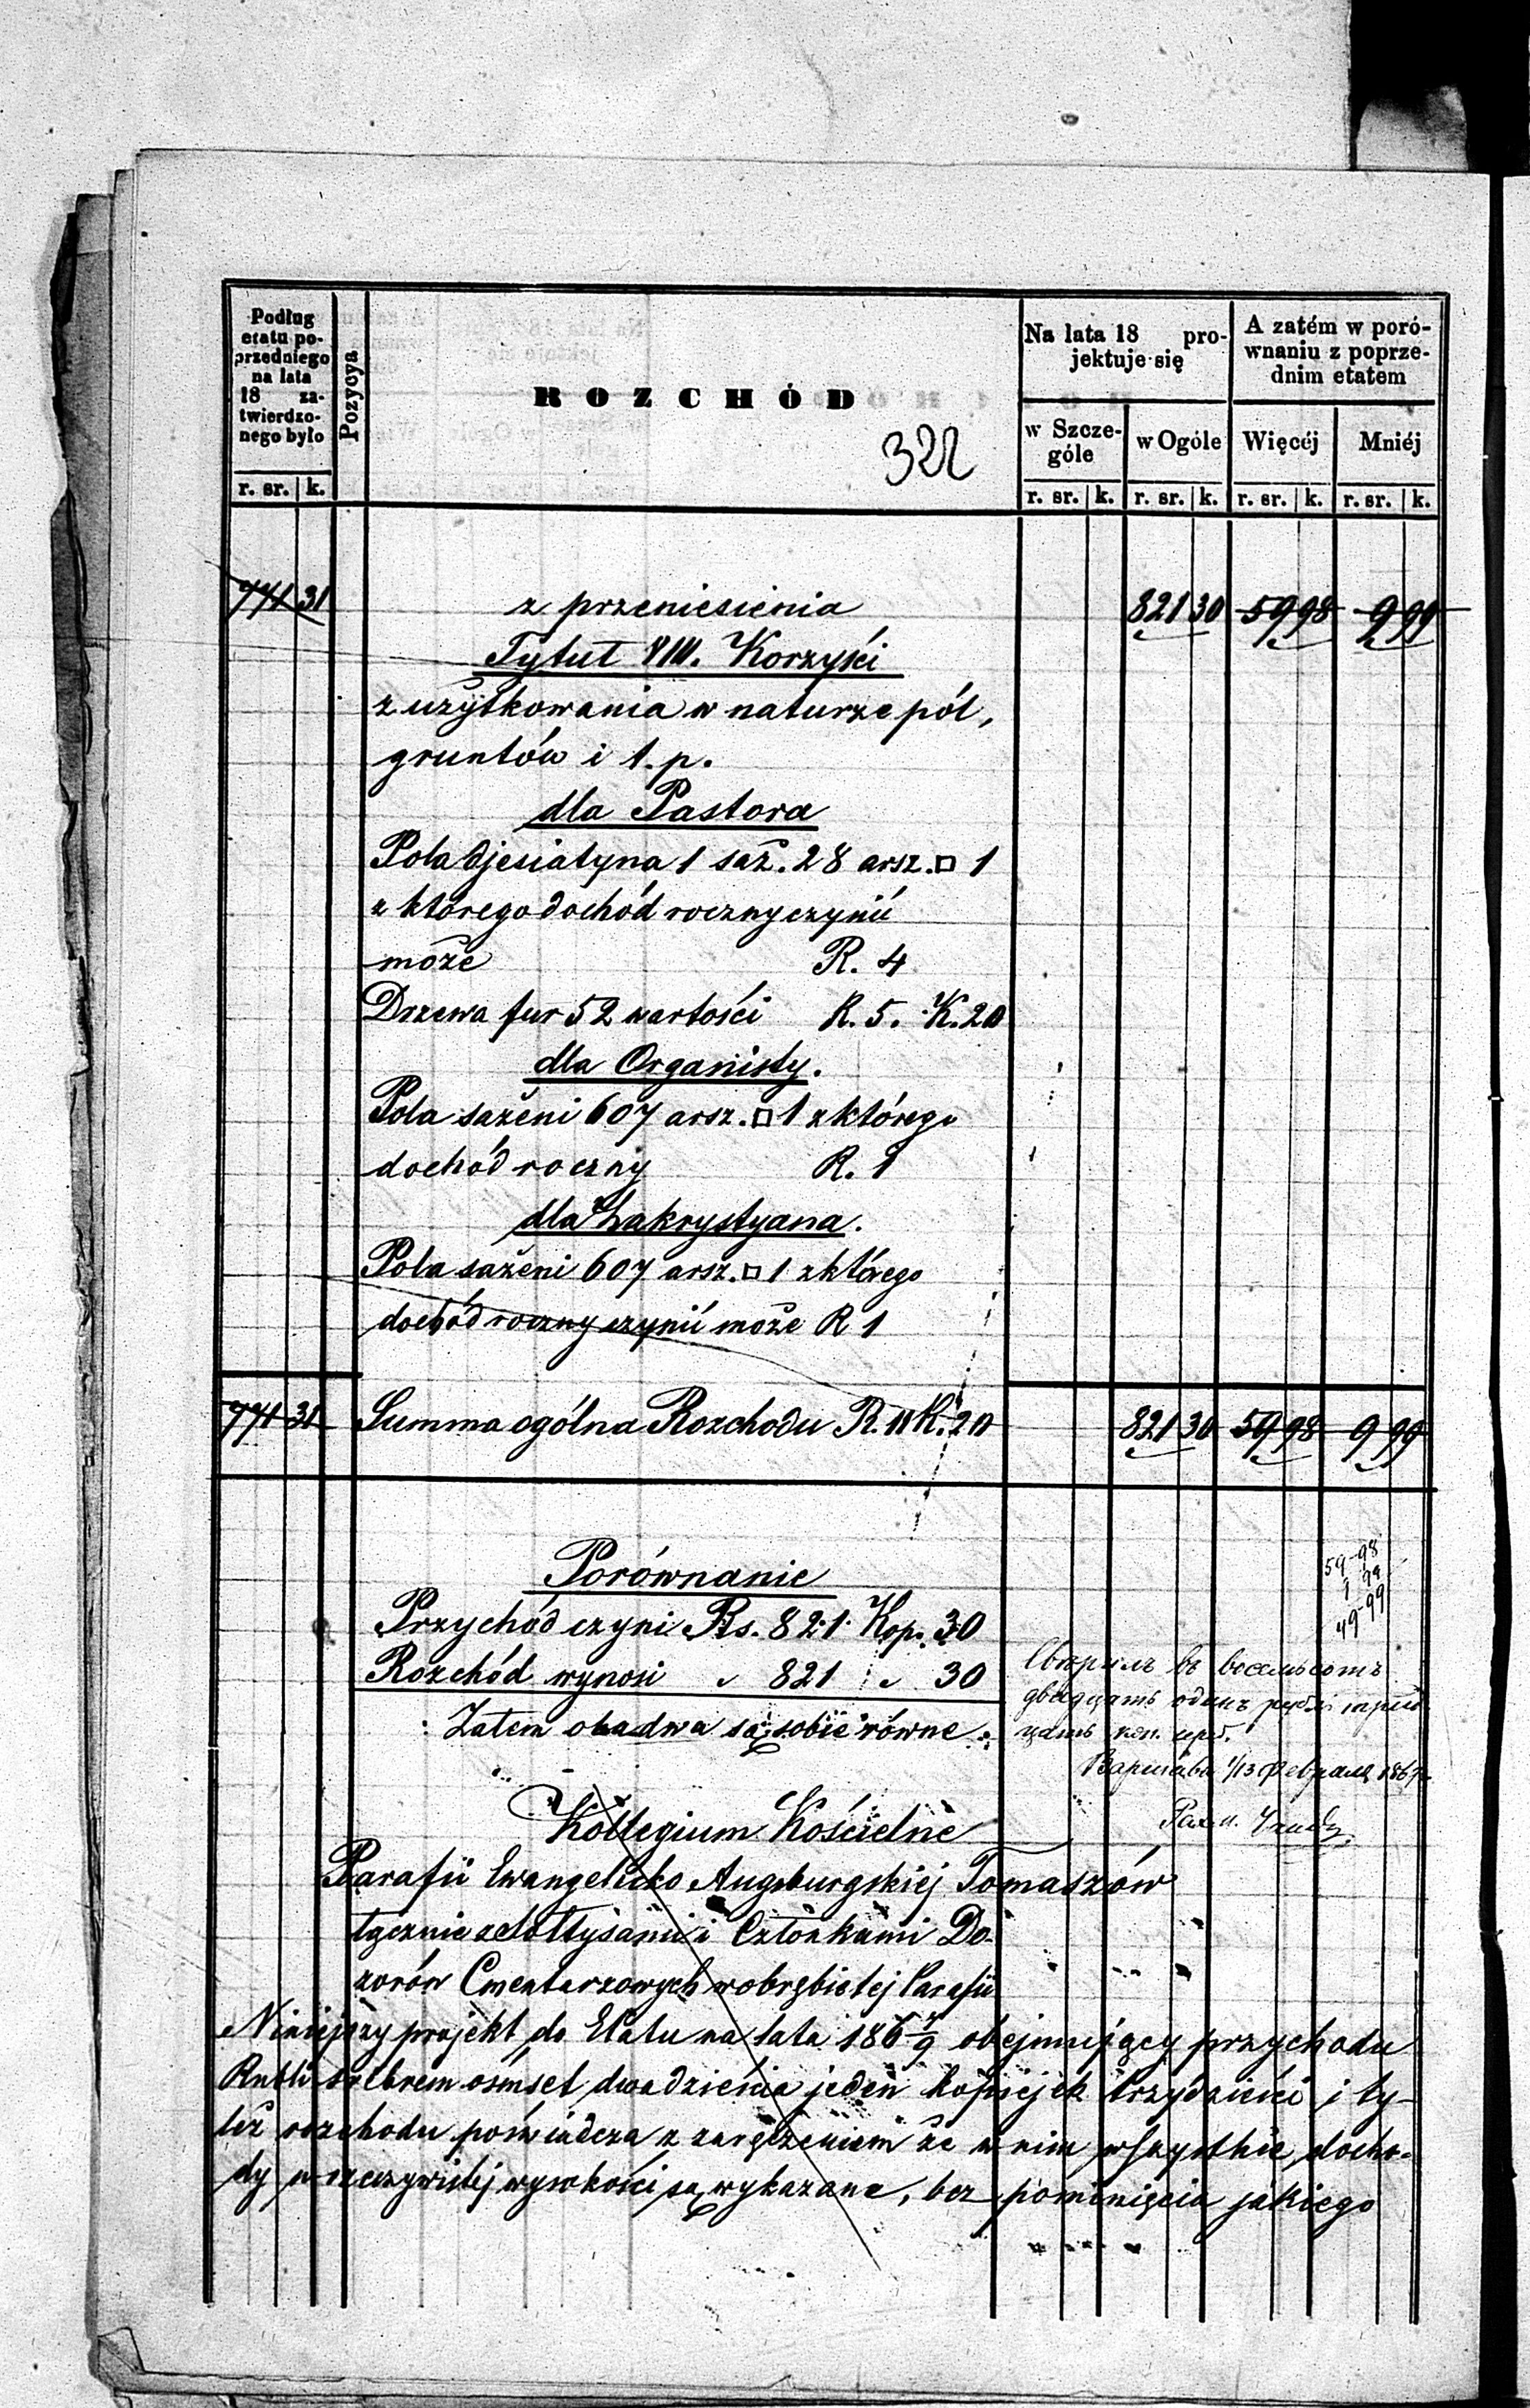 Podług
etatu po-
przedniego
na lata
18 za-
twierdzo-
nego było
r. sr. k.
Pozycya
ROZCHÓD
322
Na lata 18 pro-
jektuje się
w Szcze-
góle
w Ogóle
r. sr. k. r. sr. k.
A zatém w poró-
wnaniu z poprze-
dnim etatem
Więcéj Mniéj
r. sr. k. r. sr. k.
771 31 z przeniesienia 821 30 59 98 9 99
Tytuł VIII. Korzyści
z użytkowania w naturze pól,
gruntów i t. p.
dla Pastora
Pola djesiatyna 1 saż. 28 arsz. □ 1
z którego dochód roczny czynić
może R. 4
Drzewa fur 52 wartości R. 5. K. 20
dla Organisty.
Pola sażeni 607 arsz. □ 1 z którego
dochód roczny R. 1
dla Zakrystyana.
Pola sażeni 607 arsz. □ 1 z którego
dochód roczny czynić może R 1
771 31 Summa ogólna Rozchodu R. 11 K. 20 821 30 59 98 9 99
Porównanie
59-98
9 99
49-99
Przychód czyni Rs. 821 Kop. 30
Rozchód wynosi " 821 " 30
Zatem obadwa są sobie równe
въ восемьсотъ
двадцать одинъ рубль трид-
цать коп. сер.
Варшава 1/13 Февраля 1867
Kollegium Kościelne
Parafii Ewangelicko Augsburgskiéj Tomaszów
łącznie z Sołtysami i Członkami Do-
zorów Cmentarzowych w obrębie tej Parafii
Niniejszy projekt do Etatu na lata 186 7/9 obejmujący przychodu
Rubli srebrem ośmset dwadzieścia jeden kopiejek trzydzieści i ty-
leż rozchodu poświadcza z zaręczeniem że w nim wszystkie docho-
dy w rzeczywistej wysokości są wykazane, bez pominięcia jakiego